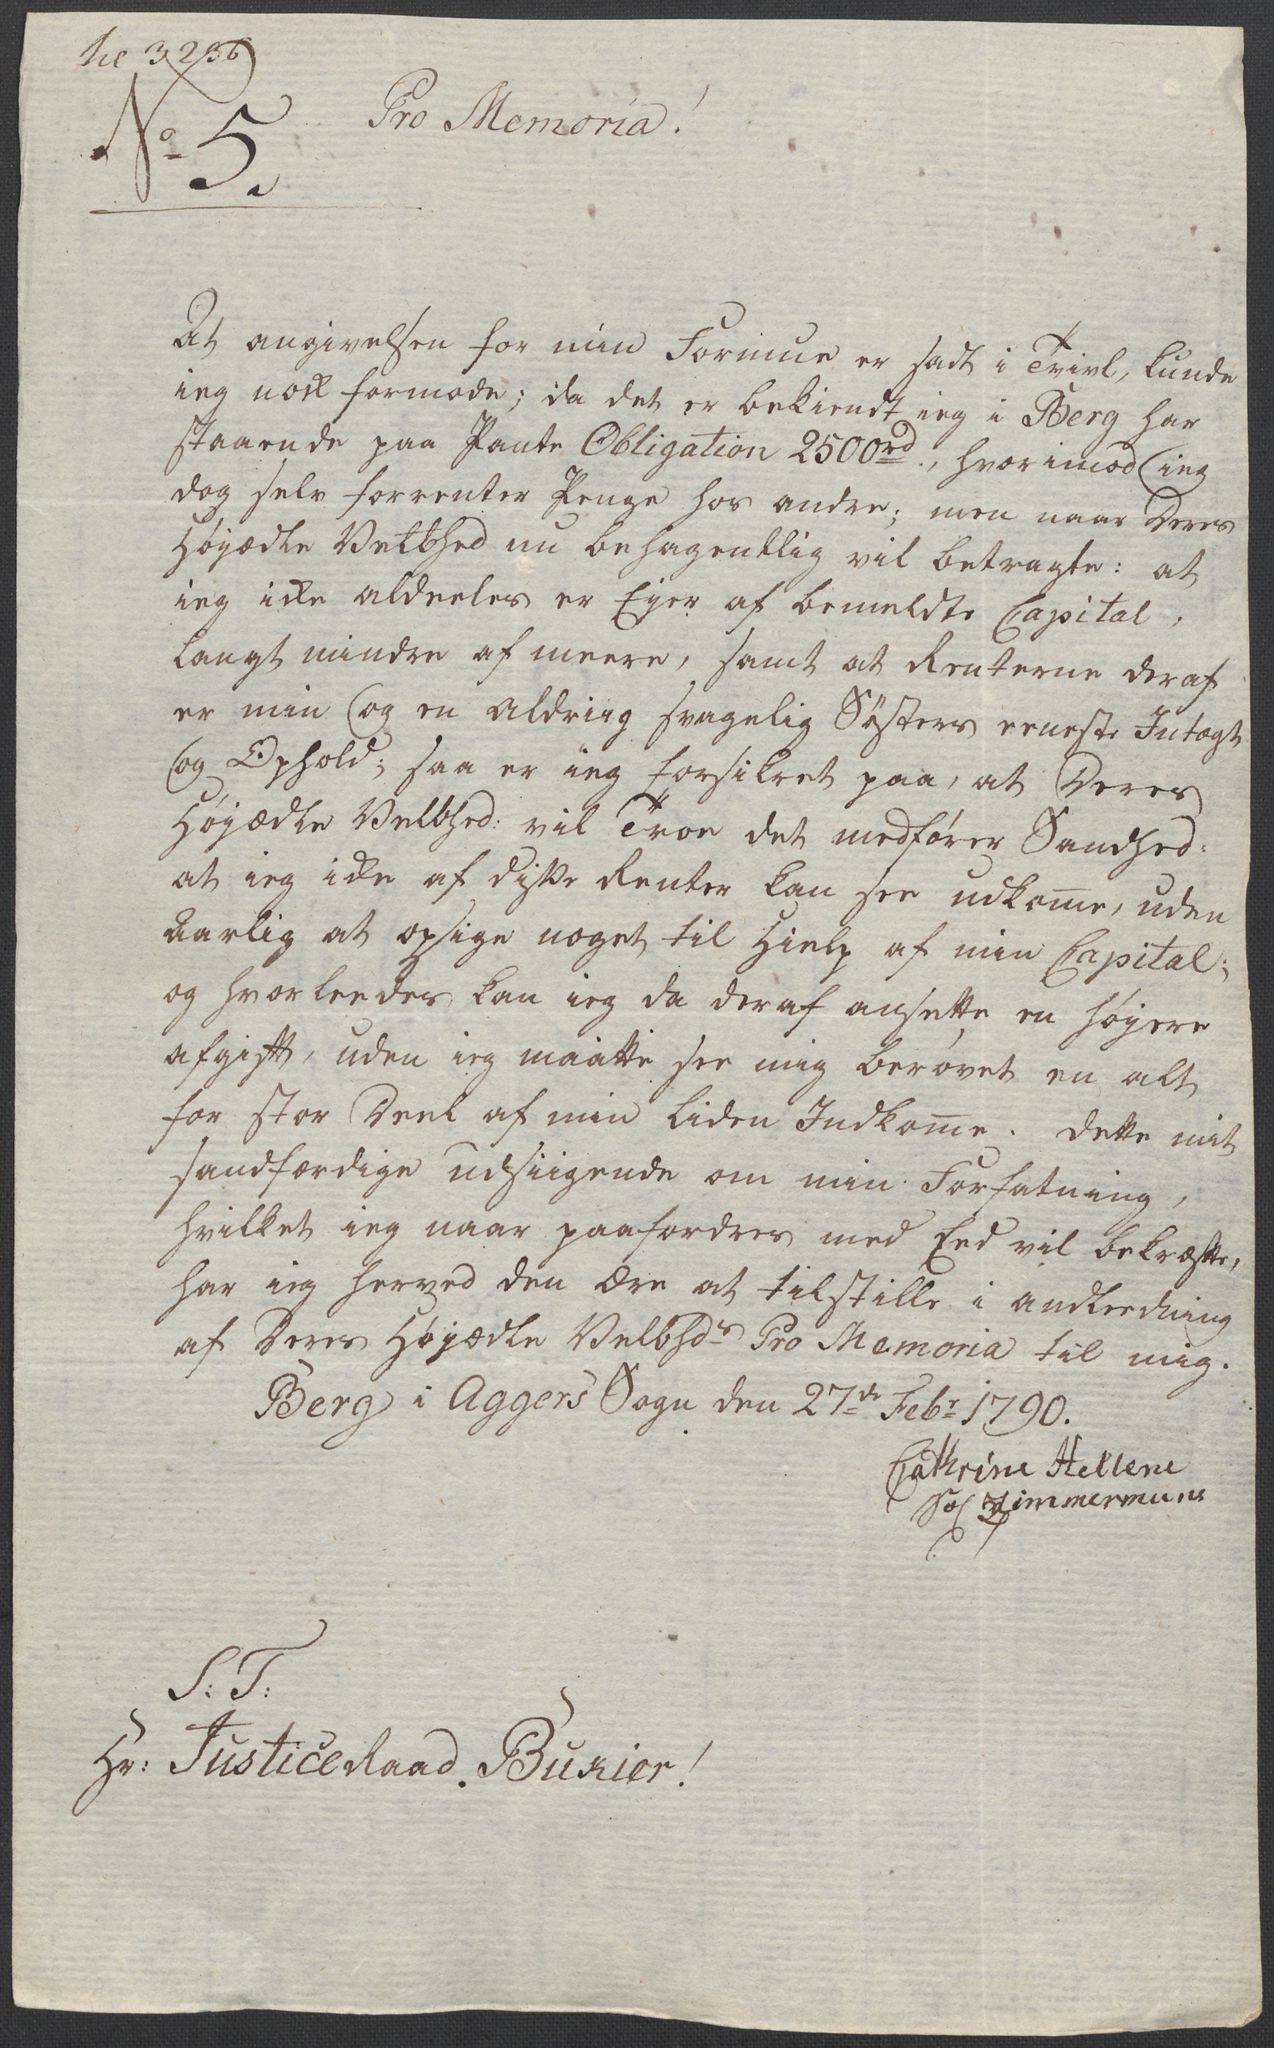 No 5.
Pro Memoria!
At angivelsen for min Formue er sadt i Tvivl, kunde
ieg nok formode; da det er bekiendt ieg i Berg har
staaende paa Pante Obligation 2500rd., hvorimod ieg
dog selv forrenter Penge hos andre; men naar Deres
Højædle Velbhed nu behagentlig vil betragte: at
ieg ikke aldeeles er Eyer af bemeldte Capital,
langt mindre af meere, samt at Renterne deraf
er min og en aldriig svagelig Søsters eeneste Intægt
og Ophold; saa er ieg forsikret paa, at Deres
Højædle Velbhed: vil Troe det medfører Sandhed:
at ieg ikke af disse Renter kan see udkom̅e, uden
aarlig at opsige noget til Hielp af min Capital;
og hvorleedes kan ieg da deraf ansette en højere
afgift, uden ieg maatte see mig berøvet en alt
for stor Deel af min liden Indkom̅e. Dette mit
sandfærdige udsiigende om min Forfatning,
hvilket ieg naar paafordres med Eed vil bekræfte,
har ieg herved den Ære at tilstille i andleedning
af Deres Højædle Velbhds Pro Memoria til mig.
Berg i Aggers Sogn den 27de Febr 1790.
Cathrine Hellene
Sal Zimmermans
S: T:
Hr: Justice Raad Buxier!